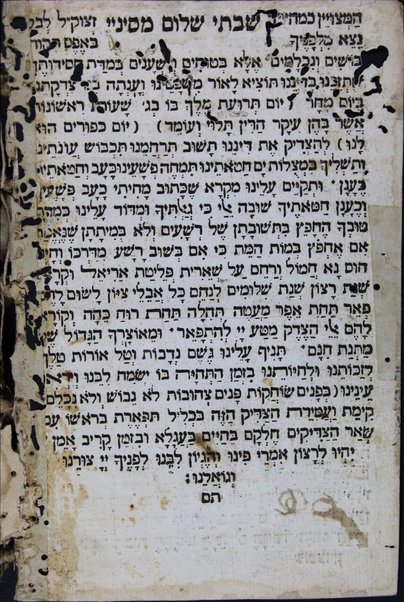 המצויין כמה״ר שבתי שלום מסיניי זצוק״ל לבל
נצא מלפניך באפס תקוה
בושים ונכלמים אלא בטוחים ונשענים במדת חסידותך
בדיננו תוציא לאור משפטנו וענתה בנו צדקתנו
ביום מחר ( יום תרועת מלך בו בג׳ שעות ראשונות
אשר בהן עיקר הדין תלוי ועומד ) ( יום כפורים הוא
לנו ) להצדיק את דיננו תשוב תרחמנו תכבוש עונתינו
ותשליך במצולות ים חטאתינו תמחה פשעינו כעב וחטאתינו
כענן ותקיים עלינו מקרא שכתוב מחיתי כעב פשעיך
וכענן חטאתיך שובה אלי כי גאלתיך ומדוד עלינו כמדת
טובך החפץ בתשובתן של רשעים ולא במיתתן שנאמר
אם אחפץ במות המת כי אם בשוב רשע מדרכו וחיה
חום נא חמול ורחם על שארית פליטת אריאל וקרא
שנת רצון שנת שלומים לנחם כל אבלי ציון לשום להם
פאר תחת אפר מעטה תהלה תחת רוח כהה וקורא
להם אלי הצדק מטע יי להתפאר ומאוצרך הגדול של
מתנת חנם תניף עלינו גשם נדבות וטל אורות טלך
לזכותנו ולהחיותנו בזמן התחיה בו ישמח לבנו
עינינו ( בפנים שוחקות פנים צהובות לא נבוש ולא נכלם
קימת ועמידת הצדיק הזה בכליל תפארת בראשו עם
שאר הצדיקים חלקם בחיים בעגלא ובזמן קריב אמן
יהיו לרצון אמרי פינו והגיון לבנו לפניך יי צורנו
וגואלנו :
תם